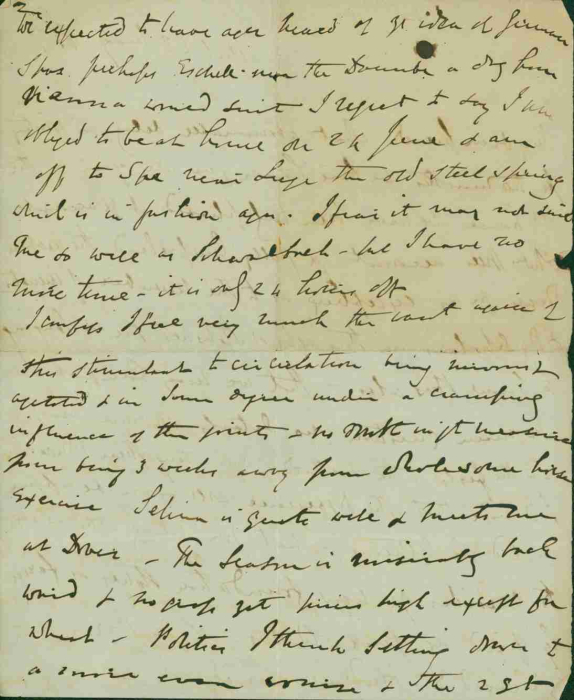 expected to have heard of yr idea of German
Spas. perhaps near the Danube a day from
Vienna would suit I regret to say I am
obliged to be at home on 24 June & am
off to Spa near Liege the old steel spring
which is in fashion again. I fear it may not suit
me so well as Schwalbach - but I have no
more time - it is only 24 hours off
I confess I feel very much the want again of
this stimulant to circulation being
& in some degree under a cramping
influence of the joints & no doubt in gt measure
from being 3 weeks away from wholesome horse
Exercise Selim is quite well & meets me
at Dover - The Season is miserably back
ward & no grass yet prices high except for
wheat - Politics I think settling down to
a more even course & the